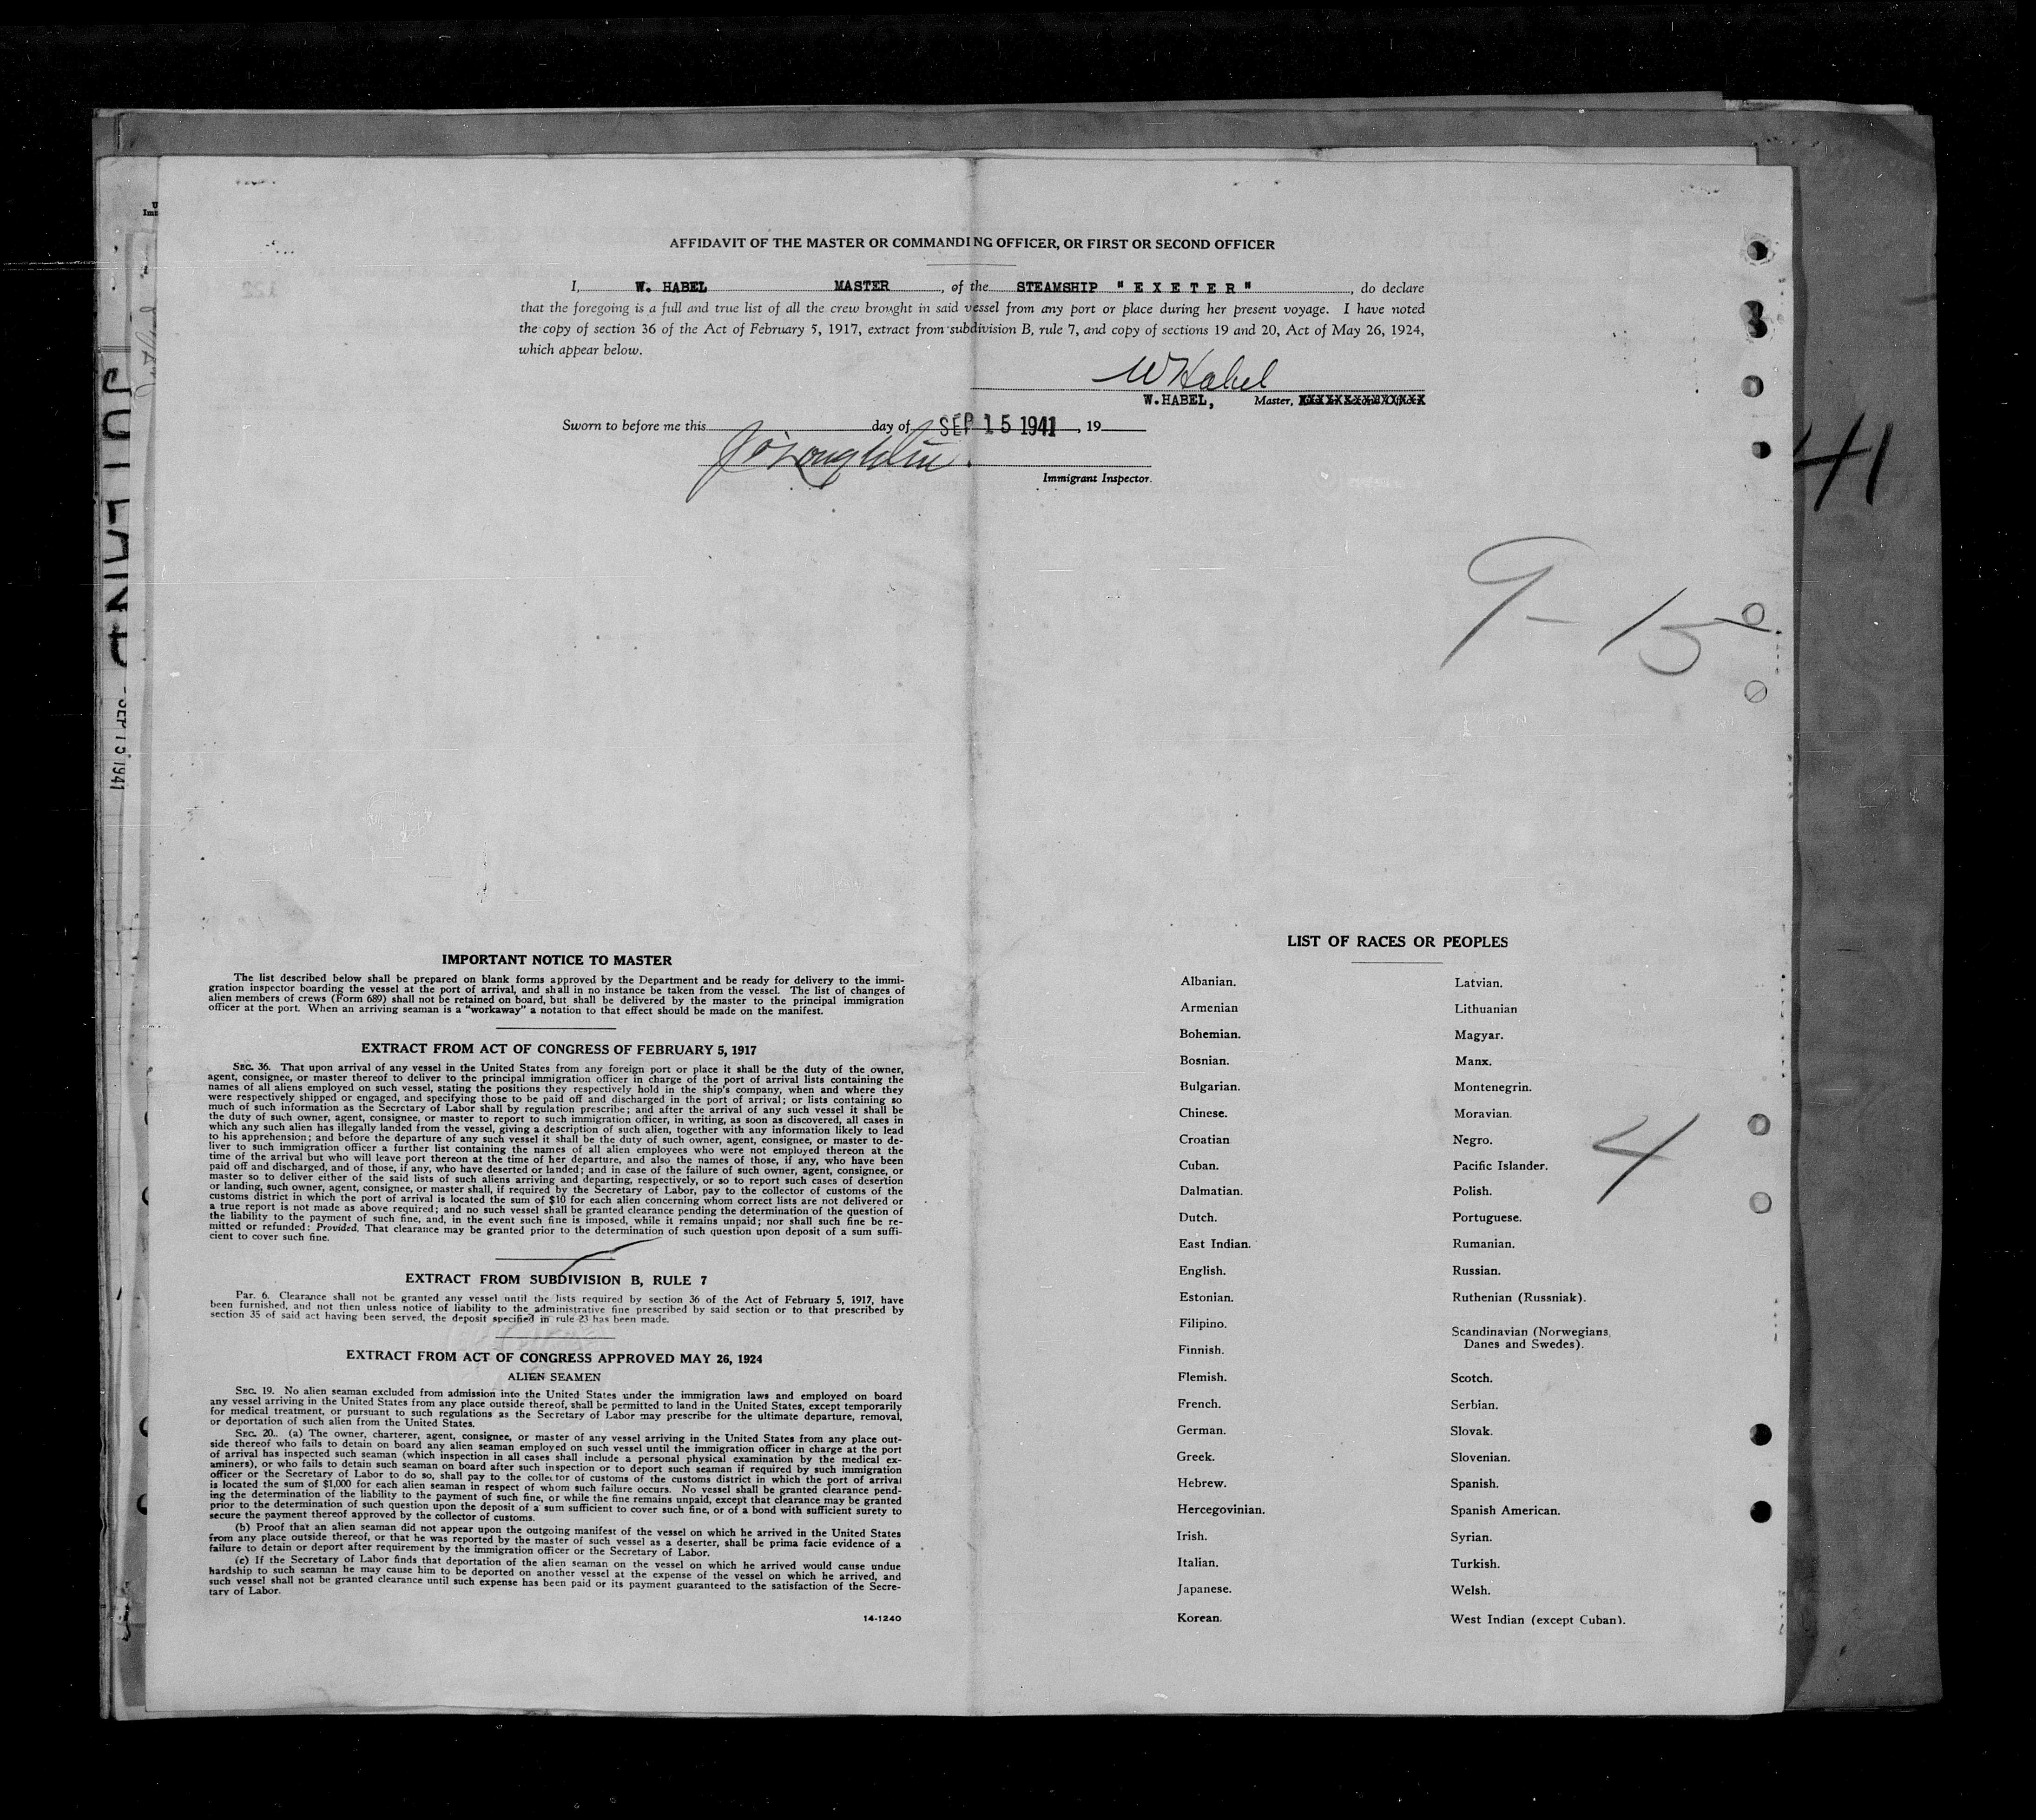 AFFIDAVIT OF THE MASTER OR COMMANDING OFFICER, OR FIRST OR SECOND OFFICER
I, W. HABEL MASTER, of the STEAMSHIP "E X E T E R", do declare
that the foregoing is a full and true list of all the crew brought in said vessel from any port or place during her present voyage. I have noted
the copy of section 36 of the Act of February 5, 1917, extract from subdivision B, rule 7, and copy of sections 19 and 20, Act of May 26, 1924,
which appear below.
W Habel
W.HABEL, Master,
Sworn to before me this day of SEP 15 1941, 19
J O'Loughlin
Immigrant Inspector.
41
9-15
IMPORTANT NOTICE TO MASTER
The list described below shall be prepared on blank forms approved by the Department and be ready for delivery to the immi-
gration inspector boarding the vessel at the port of arrival, and shall in no instance be taken from the vessel. The list of changes of
alien members of crews (Form 689) shall not be retained on board, but shall be delivered by the master to the principal immigration
officer at the port. When an arriving seaman is a "workaway" a notation to that effect should be made on the manifest.
EXTRACT FROM ACT OF CONGRESS OF FEBRUARY 5, 1917
SEC. 36. That upon arrival of any vessel in the United States from any foreign port or place it shall be the duty of the owner,
agent, consignee, or master thereof to deliver to the principal immigration officer in charge of the port of arrival lists containing the
names of all aliens employed on such vessel, stating the positions they respectively hold in the ship's company, when and where they
were respectively shipped or engaged, and specifying those to be paid off and discharged in the port of arrival; or lists containing so
much of such information as the Secretary of Labor shall by regulation prescribe; and after the arrival of any such vessel it shall be
the duty of such owner, agent, consignee, or master to report to such immigration officer, in writing, as soon as discovered, all cases in
which any such alien has illegally landed from the vessel, giving a description of such alien, together with any information likely to lead
to his apprehension; and before the departure of any such vessel it shall be the duty of such owner, agent, consignee, or master to de-
liver to such immigration officer a further list containing the names of all alien employees who were not employed thereon at the
time of the arrival but who will leave port thereon at the time of her departure, and also the names of those, if any, who have been
paid off and discharged, and of those, if any, who have deserted or landed; and in case of the failure of such owner, agent, consignee, or
master so to deliver either of the said lists of such aliens arriving and departing, respectively, or so to report such cases of desertion
or landing, such owner, agent, consignee, or master shall, if required by the Secretary of Labor, pay to the collector of customs of the
customs district in which the port of arrival is located the sum of $10 for each alien concerning whom correct lists are not delivered or
a true report is not made as above required; and no such vessel shall be granted clearance pending the determination of the question of
the liability to the payment of such fine, and, in the event such fine is imposed, while it remains unpaid; nor shall such fine be re-
mitted or refunded: Provided, That clearance may be granted prior to the determination of such question upon deposit of a sum suffi-
cient to cover such fine.
EXTRACT FROM SUBDIVISION B, RULE 7
Par. 6. Clearance shall not be granted any vessel until the lists required by section 36 of the Act of February 5, 1917, have
been furnished, and not then unless notice of liability to the administrative fine prescribed by said section or to that prescribed by
section 35 of said act having been served, the deposit specified in rule 23 has been made.
EXTRACT FROM ACT OF CONGRESS APPROVED MAY 26, 1924
ALIEN SEAMEN
SEC. 19. No alien seaman excluded from admission into the United States under the immigration laws and employed on board
any vessel arriving in the United States from any place outside thereof, shall be permitted to land in the United States, except temporarily
for medical treatment, or pursuant to such regulations as the Secretary of Labor may prescribe for the ultimate departure, removal,
or deportation of such alien from the United States.
SEC. 20.. (a) The owner, charterer, agent, consignee, or master of any vessel arriving in the United States from any place out-
side thereof who fails to detain on board any alien seaman employed on such vessel until the immigration officer in charge at the port
of arrival has inspected such seaman (which inspection in all cases shall include a personal physical examination by the medical ex-
aminers), or who fails to detain such seaman on board after such inspection or to deport such seaman if required by such immigration
officer or the Secretary of Labor to do so, shall pay to the collector of customs of the customs district in which the port of arrival
is located the sum of $1,000 for each alien seaman in respect of whom such failure occurs. No vessel shall be granted clearance pend-
ing the determination of the liability to the payment of such fine, or while the fine remains unpaid, except that clearance may be granted
prior to the determination of such question upon the deposit of a sum sufficient to cover such fine, or of a bond with sufficient surety to
secure the payment thereof approved by the collector of customs.
(b) Proof that an alien seaman did not appear upon the outgoing manifest of the vessel on which he arrived in the United States
from any place outside thereof, or that he was reported by the master of such vessel as a deserter, shall be prima facie evidence of a
failure to detain or deport after requirement by the immigration officer or the Secretary of Labor.
(c) If the Secretary of Labor finds that deportation of the alien seaman on the vessel on which he arrived would cause undue
hardship to such seaman he may cause him to be deported on another vessel at the expense of the vessel on which he arrived, and
such vessel shall not be granted clearance until such expense has been paid or its payment guaranteed to the satisfaction of the Secre-
tary of Labor.
14-1240
LIST OF RACES OR PEOPLES
Albanian.
Armenian
Bohemian.
Bosnian.
Bulgarian.
Chinese.
Croatian
Cuban.
Dalmatian.
Dutch.
East Indian.
English.
Estonian.
Filipino.
Finnish.
Flemish.
French.
German.
Greek.
Hebrew.
Hercegovinian.
Irish.
Italian.
Japanese.
Korean.
Latvian.
Lithuanian
Magyar.
Manx.
Montenegrin.
Moravian.
Negro.
Pacific Islander.
Polish.
Portuguese.
Rumanian.
Russian.
Ruthenian (Russniak).
Scandinavian (Norwegians,
Danes and Swedes).
Scotch.
Serbian.
Slovak.
Slovenian.
Spanish.
Spanish American.
Syrian.
Turkish.
Welsh.
West Indian (except Cuban).
4
SEP 15 1941